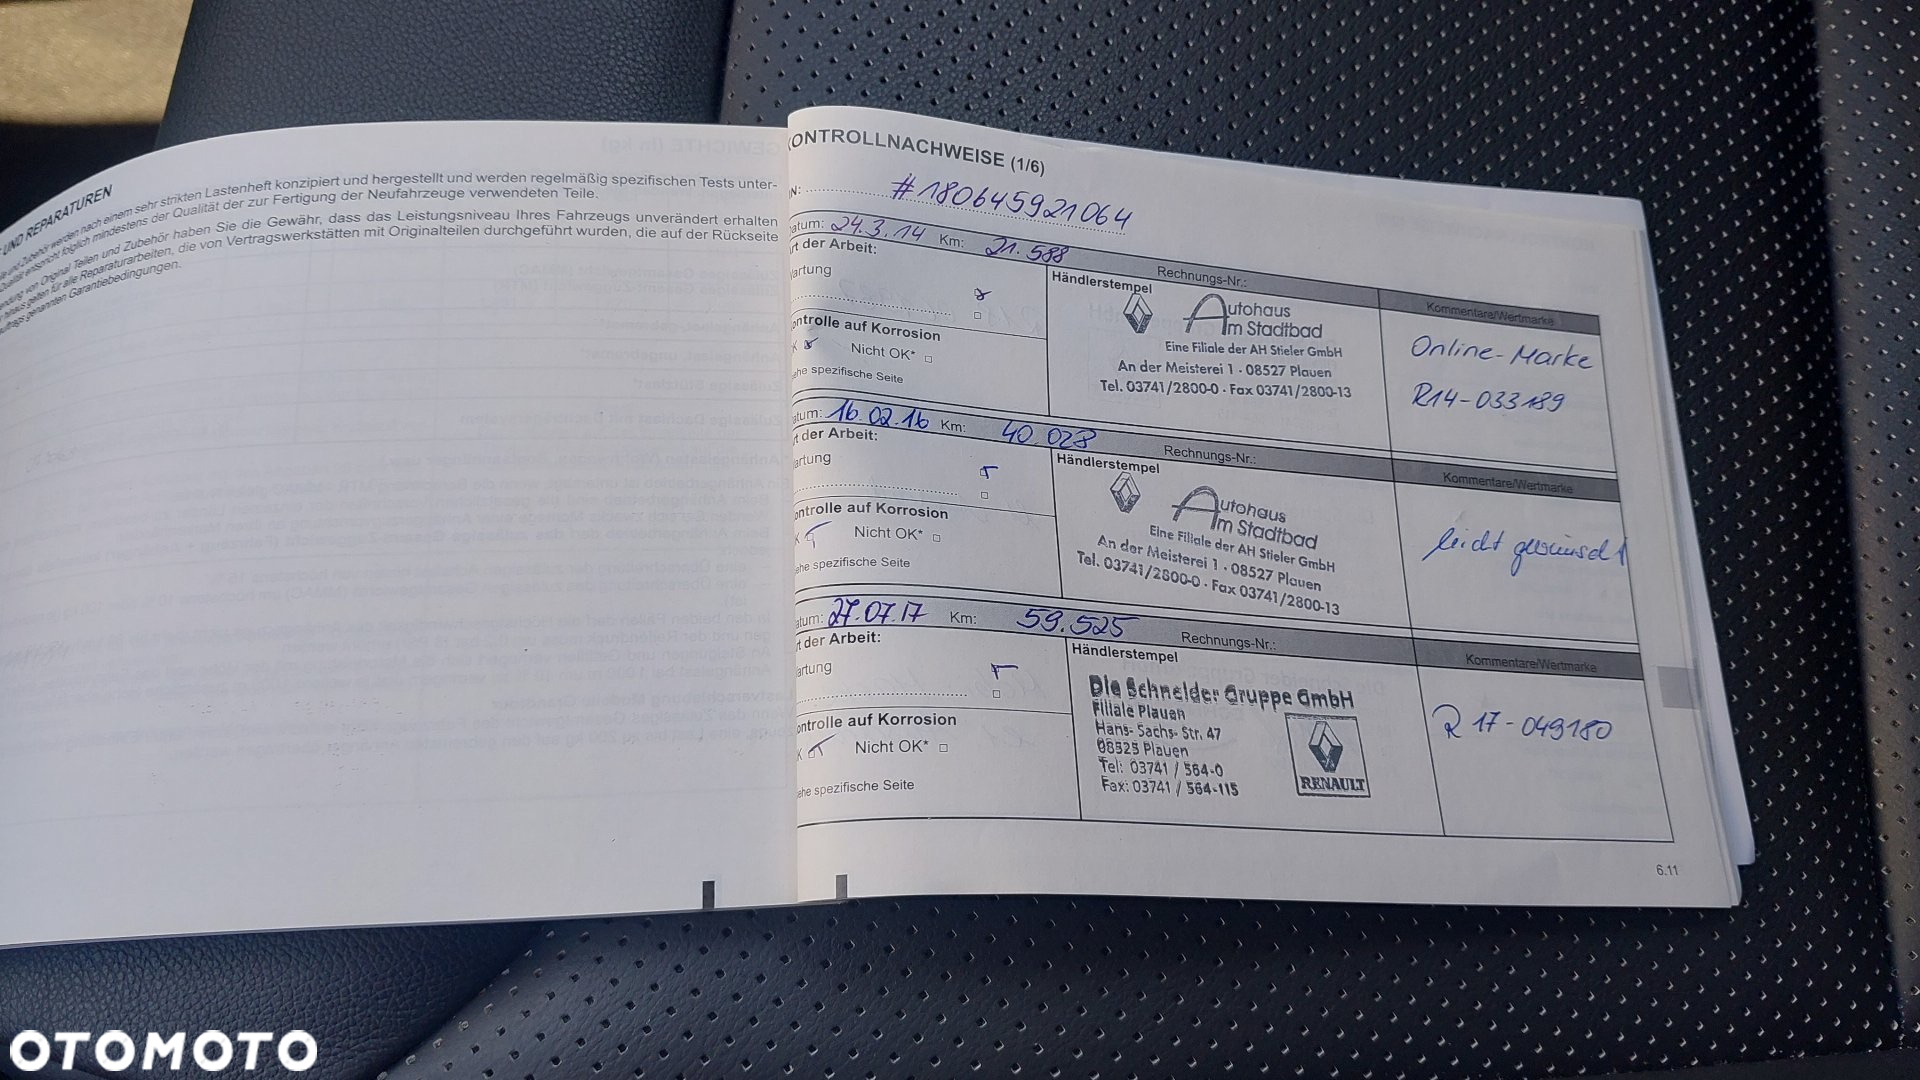 UND REPARATUREN
und Zubehör werden nach einem sehr strikten Lastenheft konzipiert und hergestellt und werden regelmäßig spezifischen Tests unter-
Qualität entspricht folglich mindestens der Qualität der zur Fertigung der Neufahrzeuge verwendeten Teile.
dung von Original Teilen und Zubehör haben Sie die Gewähr, dass das Leistungsniveau Ihres Fahrzeugs unverändert erhalten
hinaus gelten für alle Reparaturarbeiten, die von Vertragswerkstätten mit Originalteilen durchgeführt wurden, die auf der Rückseite
ftrags genannten Garantiebedingungen.
KONTROLLNACHWEISE (1/6)
IN: #180645921064
atum: 24.3.14 Km: 21.588
Rechnungs-Nr.:
Kommentare/Wertmarke
rt der Arbeit:
artung
Händlerstempel
Autohaus
Am Stadtbad
Eine Filiale der AH Stieler GmbH
An der Meisterei 1 · 08527 Plauen
Tel. 03741/2800-0 · Fax 03741/2800-13
Online-Marke
R14-033189
ontrolle auf Korrosion
K Nicht OK*
ehe spezifische Seite
atum: 16.02.16 Km: 40.028
Rechnungs-Nr.:
Kommentare/Wertmarke
rt der Arbeit:
artung
Händlerstempel
Autohaus
Am Stadtbad
Eine Filiale der AH Stieler GmbH
An der Meisterei 1 · 08527 Plauen
Tel. 03741/2800-0 · Fax 03741/2800-13
nicht gewünscht
ontrolle auf Korrosion
K Nicht OK*
ehe spezifische Seite
atum: 27.07.17 Km: 59.525
Rechnungs-Nr.:
Kommentare/Wertmarke
rt der Arbeit:
artung
Händlerstempel
Die Schneider Gruppe GmbH
Filiale Plauen
Hans- Sachs- Str. 47
08525 Plauen
Tel: 03741 / 564-0
Fax: 03741 / 564-115
RENAULT
R 17-049180
ontrolle auf Korrosion
K Nicht OK*
ehe spezifische Seite
6.11
OTOMOTO